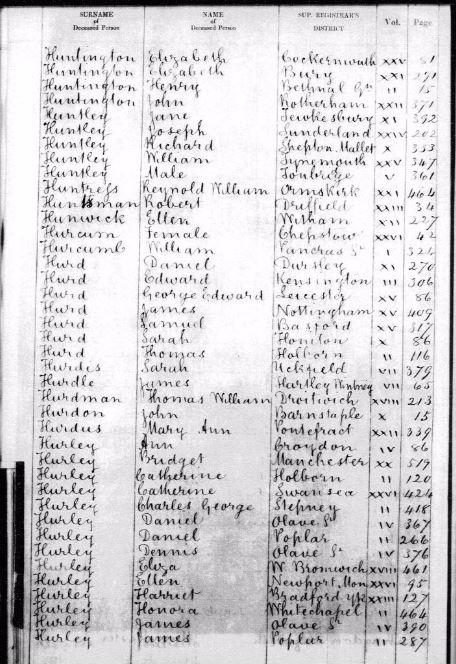 SURNAME of Deceased Person NAME of Deceased Person SUP. REGISTRAR'S DISTRICT Vol. Page
Huntington Elizabeth Cockermouth XXV 81
Huntington Elizabeth Bury XXI 291
Huntington Henry Bethnal Gn II 15
Huntington John Rotherham XXII 391
Huntley Jane Tewkesbury XI 392
Huntley Joseph Sunderland XXIV 202
Huntley Richard Shepton Mallet X 353
Huntley William Tynemouth XXV 347
Huntley Male Tonbridge V 361
Huntress Reynold William Ormskirk XXI 464
Huntsman Robert Driffield XXIII 34
Hunwick Ellen Witham XII 227
Hurcum Female Chepstow XXVI 42
Hurcumb William Pancras St I 324
Hurd Daniel Dursley XI 270
Hurd Edward Kensington III 306
Hurd George Edward Leicester XV 86
Hurd James Nottingham XV 409
Hurd Samuel Basford XV 317
Hurd Sarah Honiton X 86
Hurd Thomas Holborn II 116
Hurdes Sarah Uckfield VII 379
Hurdle James Hartley Wintney VII 65
Hurdman Thomas William Droitwich XVIII 213
Hurdon John Barnstaple X 15
Hurdus Mary Ann Pontefract XXII 339
Hurley Ann Croydon IV 86
Hurley Bridget Manchester XX 519
Hurley Catherine Holborn II 120
Hurley Catherine Swansea XXVI 424
Hurley Charles George Stepney II 418
Hurley Daniel Olave St IV 367
Hurley Daniel Poplar II 266
Hurley Dennis Olave St IV 376
Hurley Eliza W. Bromwich XVIII 461
Hurley Ellen Newport, Mon XXVI 95
Hurley Harriet Bradford Yk XXIII 127
Hurley Honora Whitechapel II 464
Hurley James Olave St IV 390
Hurley James Poplar II 287